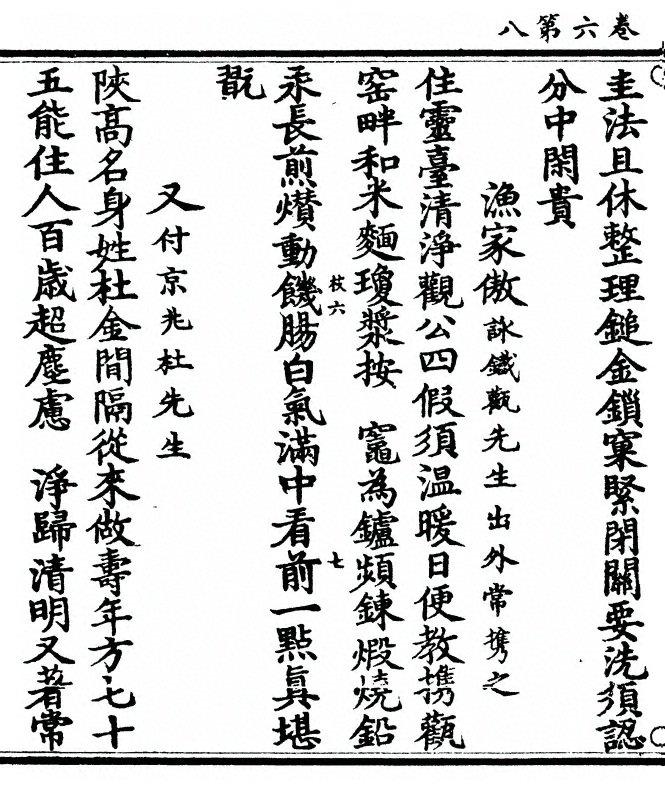 卷六第八
圭法且休整理鎚金鎖窠緊閉關要洗須認
分中閑貴
漁家傲詠鐵甎先生出外常擕之
住靈臺清淨觀公四假須温暖日便教擕觀
窑畔和米麵瓊漿按 竈為鑪頻鍊煅燒鉛
汞長煎㸇動饑腸白氣滿中看前一點真堪
翫
枝六
七
又付京兆杜先生
陝高名身姓杜金間隔從來做壽年方七十
五能住人百歲超塵慮 淨歸清明又著常